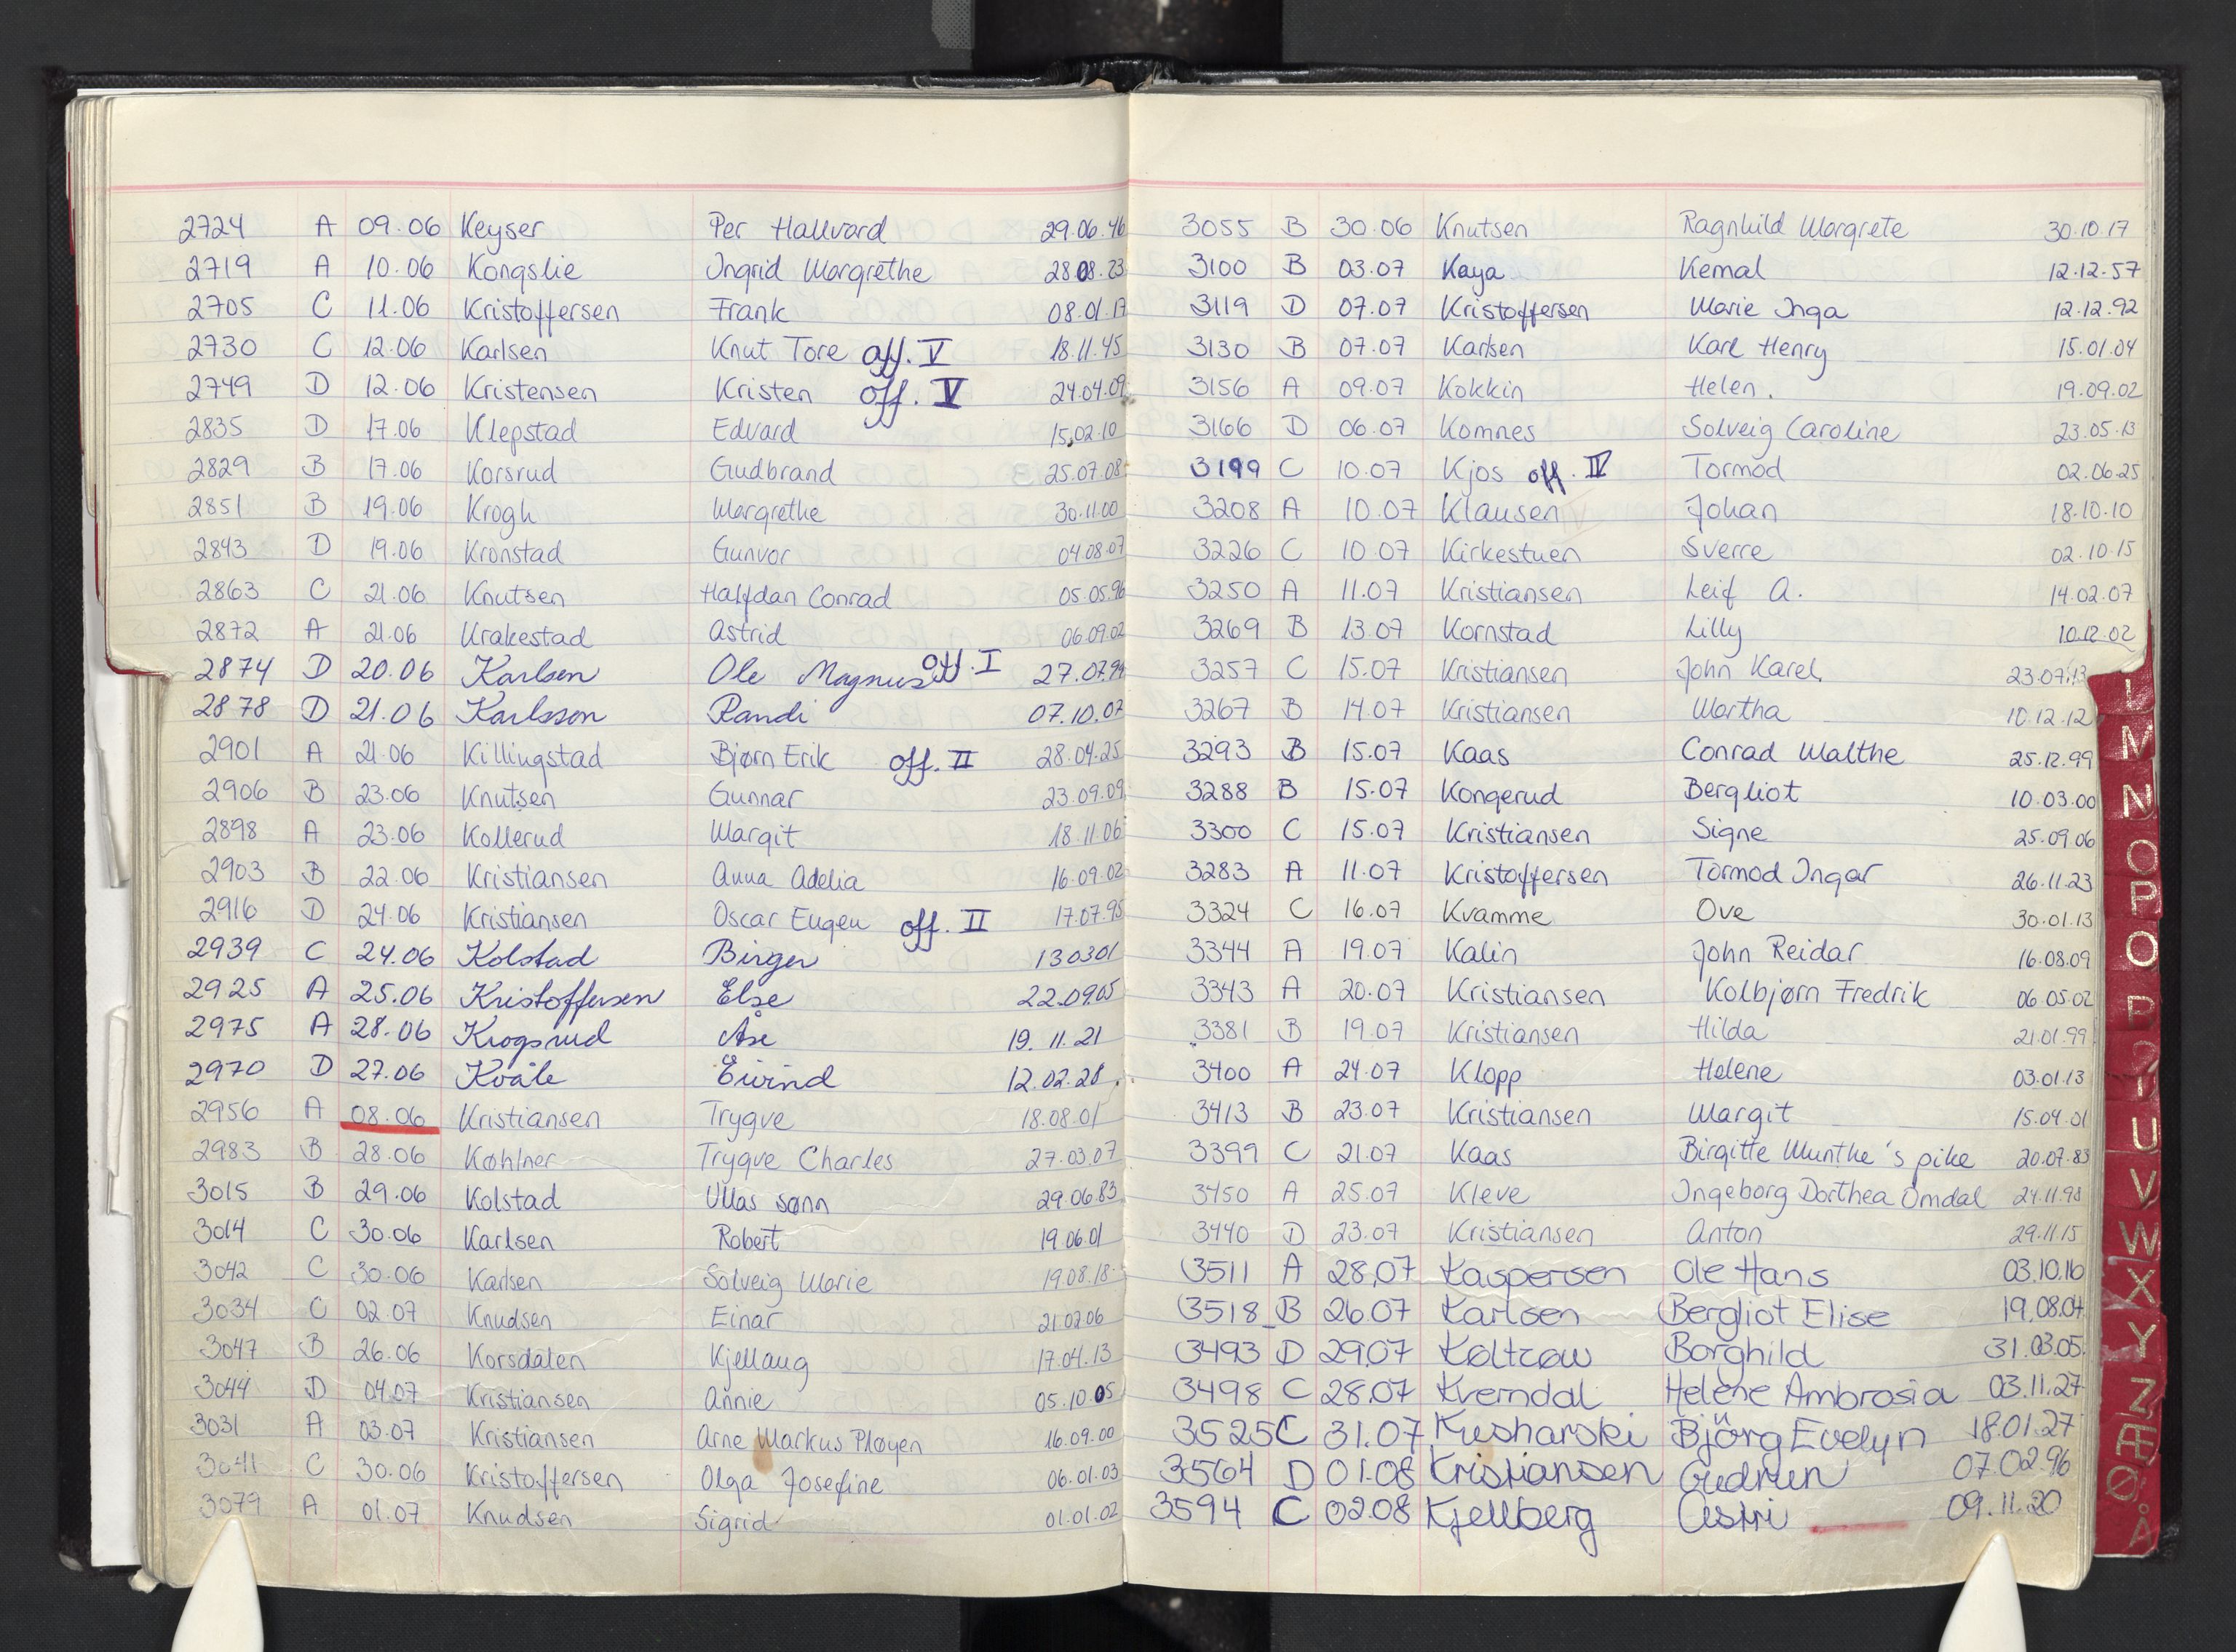 2724 A 09.06 Keyser Per Hallvard 29.06.46
2719 A 10.06 Kongslie Ingrid Margrethe 28.08.23
2705 C 11.06 Kristoffersen Frank 08.01.17
2730 C 12.06 Karlsen Knut Tore off. V 18.11.45
2749 D 12.06 Kristensen Kristen off. V 24.04.09
2835 D 17.06 Klepstad Edvard 15.02.10
2829 B 17.06 Korsrud Gudbrand 25.07.08
2851 B 19.06 Krogh Margrethe 30.11.00
2843 D 19.06 Kronstad Gunvor 04.08.07
2863 C 21.06 Knutsen Halfdan Conrad 05.05.96
2872 A 21.06 Krakestad Astrid 06.09.02
2874 D 20.06 Karlsen Ole Magnus off. I 27.07.94
2878 D 21.06 Karlsson Randi 07.10.07
2901 A 21.06 Killingstad Bjørn Erik off. II 28.04.25
2906 B 23.06 Knutsen Gunnar 23.09.09
2898 A 23.06 Kollerud Margit 18.11.06
2903 B 22.06 Kristiansen Anna Adelia 16.09.02
2916 D 24.06 Kristiansen Oscar Eugen off. II 17.07.95
2939 C 24.06 Kolstad Birger 130301
2925 A 25.06 Kristoffersen Else 22.09.05
2975 A 28.06 Krogsrud Åse 19.11.21
2970 D 27.06 Kvåle Eivind 12.02.28
2956 A 08.06 Kristiansen Trygve 18.08.01
2983 B 28.06 Køhlner Trygve Charles 27.03.07
3015 B 29.06 Kolstad Ullas sønn 29.06.83
3014 C 30.06 Karlsen Robert 19.06.01
3042 C 30.06 Karlsen Solveig Marie 19.08.18
3034 C 02.07 Knudsen Einar 21.02.06
3047 B 26.06 Korsdalen Kjellaug 17.04.13
3044 D 04.07 Kristiansen Annie 05.10.05
3031 A 03.07 Kristiansen Arne Markus Pløyen 16.09.00
3041 C 30.06 Kristoffersen Olga Josefine 06.01.03
3079 A 01.07 Knudsen Sigrid 01.01.02
3055 B 30.06 Knutsen Ragnhild Margrete 30.10.17
3100 B 03.07 Kaya Kemal 12.12.57
3119 D 07.07 Kristoffersen Marie Inga 12.12.92
3130 B 07.07 Karlsen Karl Henry 15.01.04
3156 A 09.07 Kokkin Helen. 19.09.02
3166 D 06.07 Komnes Solveig Caroline 23.05.13
3199 C 10.07 Kjos off. IV Tormod 02.06.25
3208 A 10.07 Klausen Johan 18.10.10
3226 C 10.07 Kirkestuen Sverre 02.10.15
3250 A 11.07 Kristiansen Leif A. 14.02.07
3269 B 13.07 Kornstad Lilly 10.12.02
3257 C 15.07 Kristiansen John Karel 23.07.13
3267 B 14.07 Kristiansen Martha 10.12.12
3293 B 15.07 Kaas Conrad Malthe 25.12.99
3288 B 15.07 Kongerud Bergliot 10.03.00
3300 C 15.07 Kristiansen Signe 25.09.06
3283 A 11.07 Kristoffersen Tormod Ingar 26.11.23
3324 C 16.07 Kvamme Ove 30.01.13
3344 A 19.07 Kalin John Reidar 16.08.09
3343 A 20.07 Kristiansen Kolbjørn Fredrik 06.05.02
3381 B 19.07 Kristiansen Hilda 21.01.99
3400 A 24.07 Klopp Helene 03.01.13
3413 B 23.07 Kristiansen Margit 15.04.01
3399 C 21.07 Kaas Birgitte Munthe's pike 20.07.83
3450 A 25.07 Kleve Ingeborg Dorthea Omdal 24.11.98
3440 D 23.07 Kristiansen Anton 29.11.15
3511 A 28.07 Kaspersen Ole Hans 03.10.16
3518 B 26.07 Karlsen Bergliot Elise 19.08.04
3493 D 29.07 Koltzow Borghild 31.03.05
3498 C 28.07 Kverndal Helene Ambrosia 03.11.27
3525 C 31.07 Kusharski Björg Evelyn 18.01.27
3564 D 01.08 Kristiansen Gudrun 07.02.96
3594 C 02.08 Kjellberg Astri 09.11.20
L
M
N
O
P
O
P
U
V
W
X
Y
Z
Æ
Ø
Å